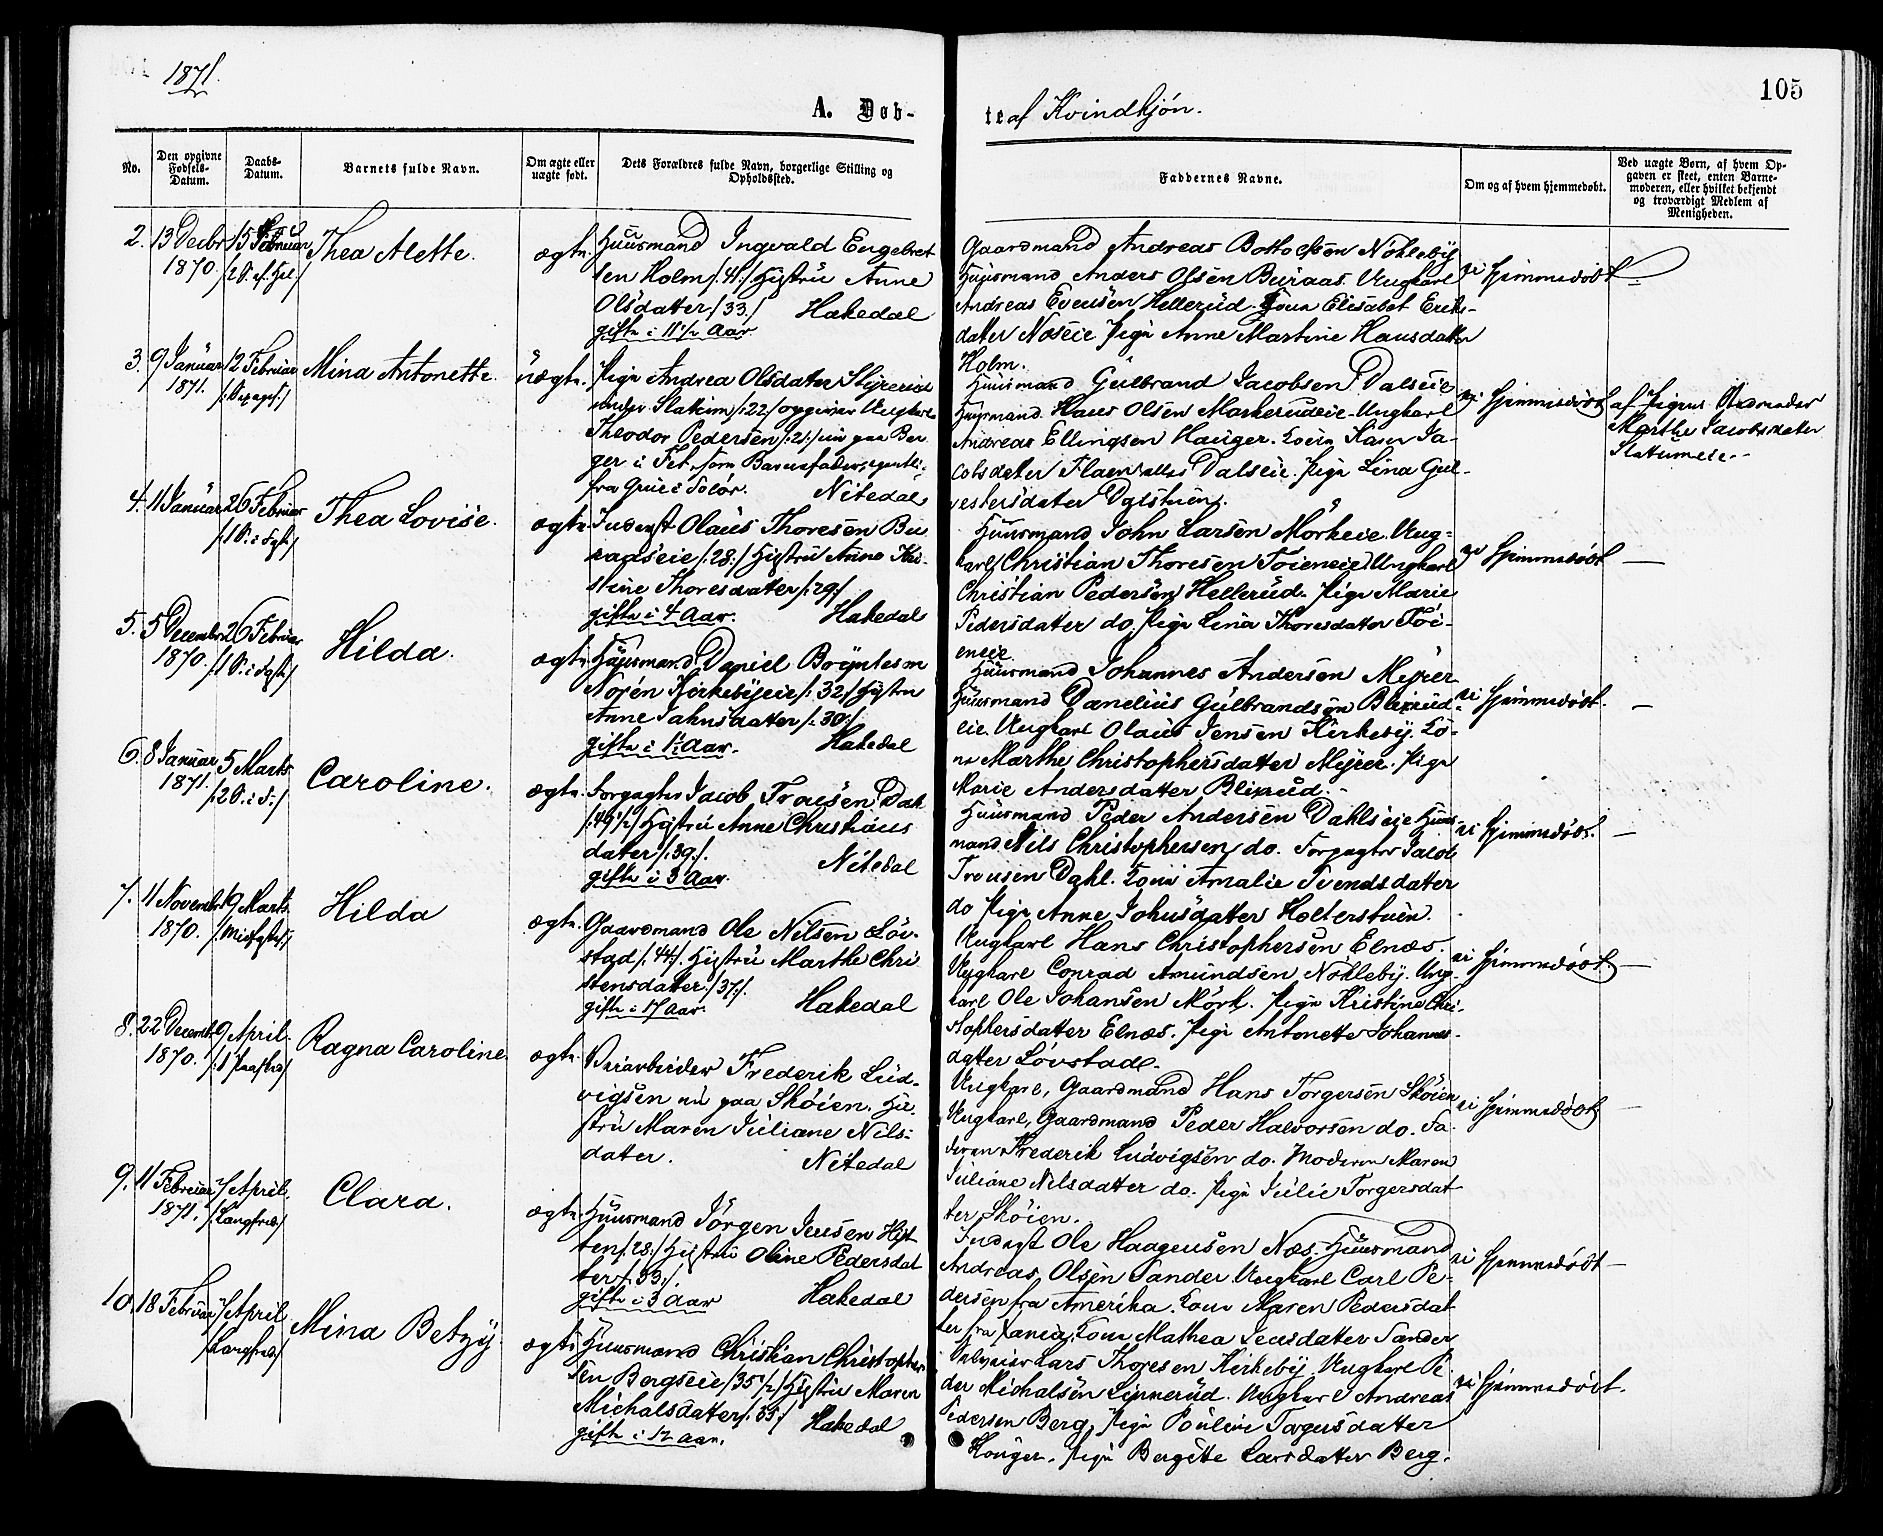 1871.
105
A. Døb-
te af Kvindkjön.
No.
Den opgivne Fødsels-Datum.
Daabs-Datum.
Barnets fulde Navn.
Om ægte eller uægte født.
Dets Forældres fulde Navn, borgerlige Stilling og Opholdssted.
Faddernes Navne.
Om og af hvem hjemmedøbt.
Ved uægte Børn, af hvem Op-
gaven er skeet, enten Barne-
moderen, eller hvilket bekjendt
og troværdigt Medlem af
Menigheden.
2. 13 Decbr 1870. 15 Februar
Thea Alette.
ægte.
Huusmand Ingvald Engebret
sen Holm /:41:/ Hustru Anne
Olsdatter /:33:/ Hakedal
gifte i 11½ Aar
Gaardmand Andreas Bottolfsen Nökleby
Huusmand Anders Olsen Buraas. Ungkarl
Andreas Evensen Hellerud. Kona Elisabet Eriks-
datter Noseie Pige Anne Martine Hansdatter
Holm.
ei Hjemmedöbt
3. 9 Januar 1871. 12 Februar
Mina Antonette.
uægte.
Pige Andrea Olsdater
under Slattum /:22:/ opgiver Ungkarl
Theodor Pedersen /:21:/ nu paa Ber
ger i Fet som Barnefader,
fra Grue i Solör. Nitedal
Huusmand Gulbrand Jacobsen Dalseie
Huusmand Hans Olsen Markerudeie. Ungkarl
Andreas Ellingsen Hauger. Kone Karen Ja-
cobsdater Dalseie. Pige Lina Gul-
Dalstuen.
ei Hjemmedöbt
af Pigens
Marthe Jacobsdater
Slatumeie.
4. 11 Januar 26 Februar
Thea Lovise.
ægte
Inderst Olaus Thoresen Bu
raaseie /:28:/ Hustru Anne Kri-
stine Thoresdatter /:29:/
gifte i 4 Aar. Hakedal
Huusmand John Larsen Mörkeie. Ung-
karl Christian Thoresen Töieneie Ungkarl
Christian Pedersen Hellerud. Pige Marie
Pedersdatter do. Pige Lina Thoresdatter Töi-
eneie.
ei Hjemmedöbt
5. 5 December 1870. 26 Februar
Hilda.
ægte
Huusmand Daniel
Norén Kirkebyeie /:32:/ Hustru
Anne Jahnsdatter /:30:/
gifte i 1½ Aar. Hakedal
Huusmand Johannes Andersen Myrer
Huusmand Danelius Gulbrandsen Blixrud-
eie. Ungkarl Olaus Jensen Kirkeby. Ko-
ne Marthe Christophersdatter Myrer. Pige
Marie Andersdatter Blixrud.
ei Hjemmedöbt.
6. 8 Januar 1871. 5 Marts
Caroline.
ægte.
Forpagter Jacob Trousen Dahl
/:49½:/ Hustru Anne Christians
dater /:39:/. Nitedal
gifte i 3 Aar.
Huusmand Peder Andersen Dahlseie Huus-
mand Nils Christophersen do. Forpagter Jacob
Trousen Dahl. Kone Amalie Svendsdatter
do Pige Anne Johnsdatter Holterstuen.
ei Hjemmedöbt.
7. 11 Novembr 1870. 19 Marts
Hilda
ægte.
Gaardmand Ole Nilsen Löv-
stad /:44:/. Hustru Marthe Chri
stensdatter /:37:/.
gifte i 17 Aar. Hakedal
Ungkarl Hans Christophersen Elnæs.
Ungkarl Conrad Amundsen Nökleby. Ung-
karl Ole Johansen Mörk. Pige Kristine Chri-
stophersdatter Elnæs. Pige Antonette Johannes-
datter Lövstad.
ei Hjemmedöbt
8. 22 Decembr 1870. 9 April.
Ragna Caroline.
ægte.
Veiarbeider Frederik Lud-
vigsen nu paa Sköien. Hu-
stru Maren Juliane Nils-
dater. Nitedal
Ungkarl, Gaardmand Hans Torgersen Sköien
Ungkarl, Gaardmand Peder Halvorsen do. Fa-
deren Frederik Ludvigsen do. Moderen Maren
Juliane Nilsdatter do. Pige Julie Torgersdat
ter Sköien.
ei Hjemmedöbt
9. 11 Februar 1871. 7 April. /:Langfred:/
Clara.
ægte.
Huusmand Jörgen Jensen
ten /:28:/ Hustru Oline Pedersdat
ter /:33:/.
gifte i 3 Aar Hakedal
Inderst Ole Haagensen Næs. Huusmand
Andreas Olsen Sander Ungkarl Carl Pe-
dersen fra Amerika. Kone Maren Pedersdat
ter fra Kone Mathea Jensdatter Sander
ei Hjemmedöbt
10. 18 Februar 7 April /:Langfred:/
Mina Betzy.
ægte
Huusmand Christian Christopher
sen Bergseie /:35½:/ Hustru Maren
Michalsdatter /:33:/ Hakedal
gifte i 12 Aar.
Lars Thoresen Kirkeby Ungkarl Pe
der Michalsen Linnerud. Ungkarl Andreas
Pedersen Berg, Pige Pouline Torgersdatter
Hauger. Pige Bergitte Larsdatter Berg.
ei Hjemmedöbt.